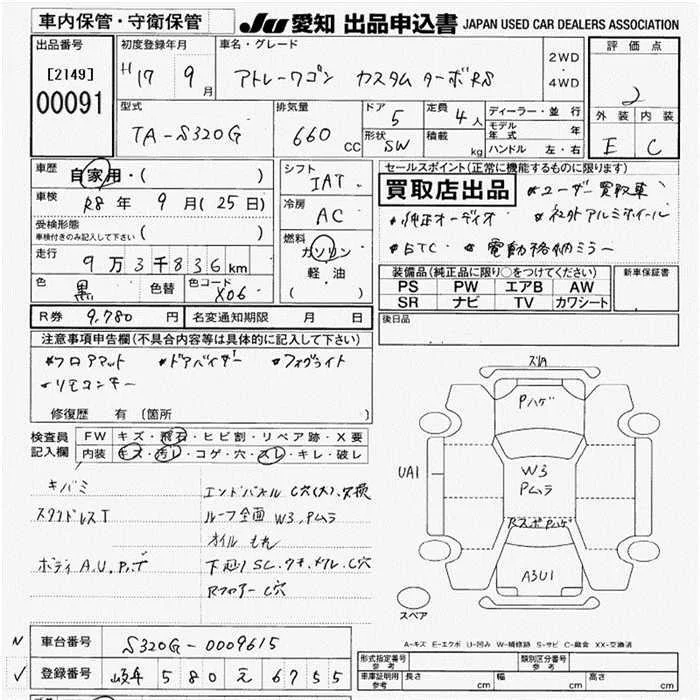 車内保管・守衛保管
JU 愛知 出品申込書 JAPAN USED CAR DEALERS ASSOCIATION
出品番号
[2149]
00091
初度登録年月
H17 9月
車名・グレード
アトレーワゴン カスタムターボRS
2WD
・
4WD
評価点
2
外装 内装
E C
型式
TA-S320G
排気量
660 CC
ドア
5
形状
SW
定員
4人
積載
kg
ディーラー・並行
モデル年式 年
ハンドル 左・右
車歴
自家用・( )
車検
R8年 9月(25日)
受検形態
車検付きのみ記入して下さい ( )
走行
9万3千836km
色
黒
色替
色コード
X06
シフト
IAT
冷房
AC
燃料
ガソリン
軽・油
( )
セールスポイント(正常に機能するものに限ります)
買取店出品
*ユーザー買取車
*純正オーディオ
*社外アルミホイール
*ETC
*電動格納ミラー
装備品(純正品に限り○をつけてください)
PS PW エアB AW
SR ナビ TV カワシート
新車保証書
後日品
R券 9,780円
名変通知期限 月 日
注意事項申告欄(不具合内容等は具体的に記入して下さい)
*フロアマット *ドアバイザー *フォグライト
*リモコンキー
修復歴 有(箇所 )
検査員
記入欄
FW キズ・飛石・ヒビ割・リペア跡・X要
内装 キズ・汚レ・コゲ・穴・スレ・キレ・破レ
キバミ
エンドパネル C穴(大)、交換
スタッドレスT
ルーフ全面 W3、Pムラ
オイルもれ
ボディ A、U、
下廻り SC、
Rフロアー C穴
ズレA
Pハゲ
UA1
W3
Pムラ
RスポPハゲ
A3U1
スペア
A-キズ E-エクボ U-凹み W-補修跡 S-サビ C-腐食 XX-交換済
車台番号
S320G-0009615
登録番号
岐阜 580 え 6755
形式指定番号
参考
類別区分番号
参考
車庫証明用
参考
長さ cm 幅 cm 高さ cm